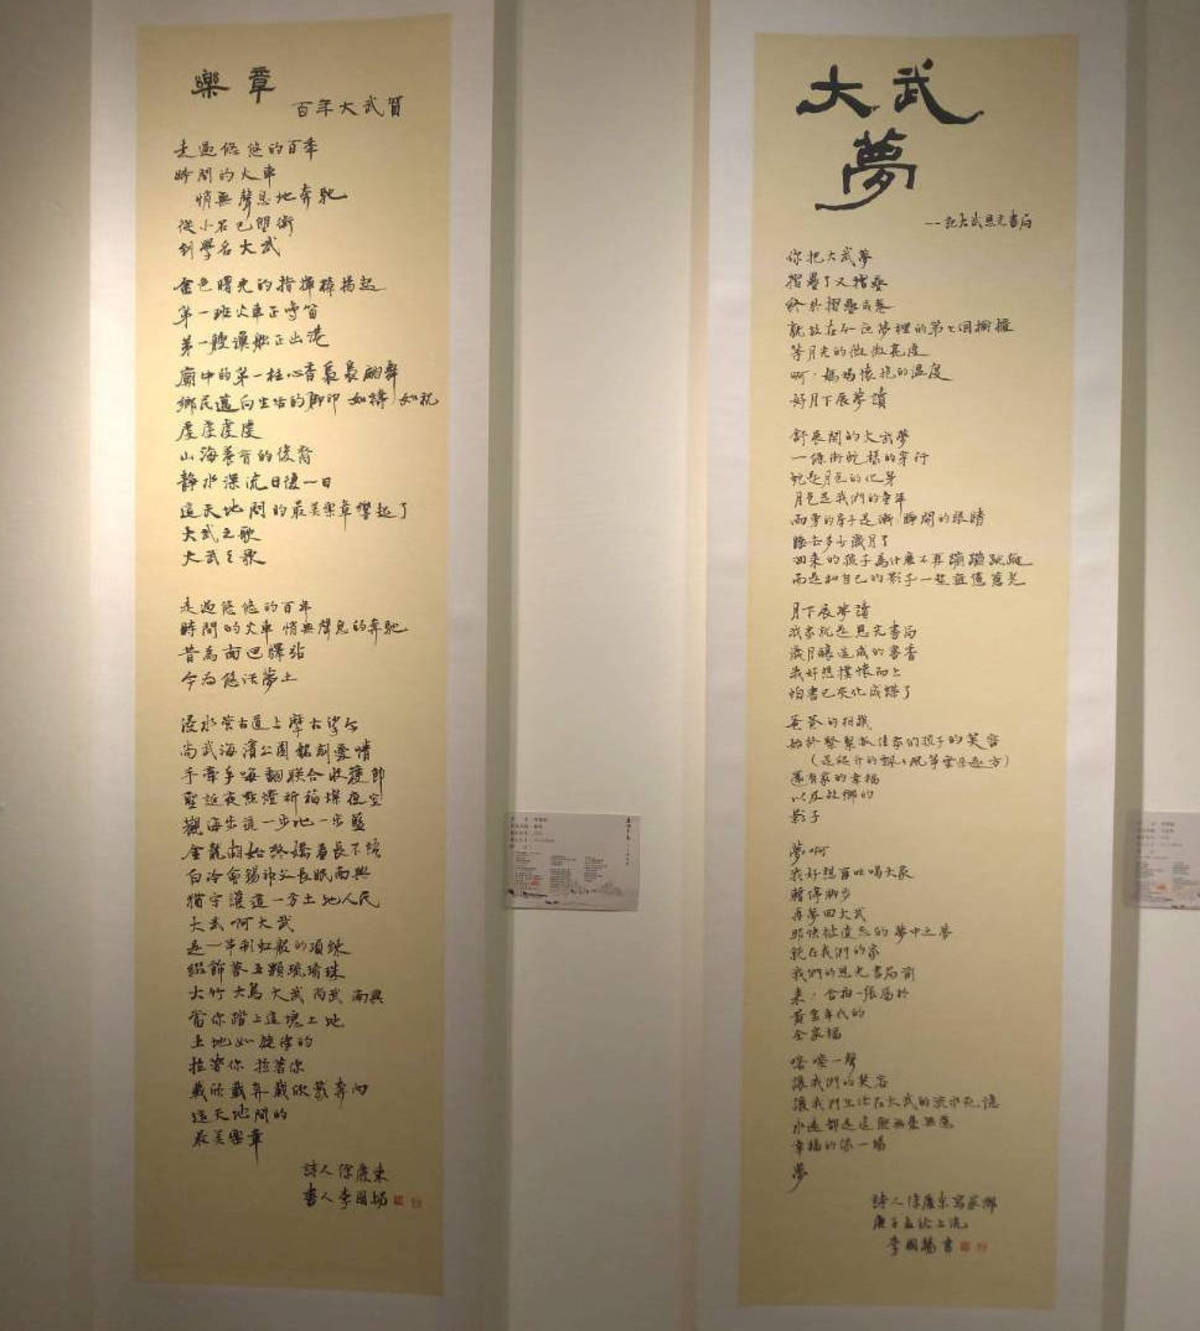 樂章
百年大武賀
走過悠悠的百年
時間的火車
悄無聲息地奔馳
從小名巴塱衛
到學名大武
金色曙光的指揮棒揚起
第一班火車正鳴笛
第一艘漁船正出港
廟中的第一柱心香裊裊翩舞
鄉民邁向生活的腳印 如禱 如祝
虔虔虔虔
山海養育的後裔
靜水深流日復一日
這天地間的最美樂章響起了
大武之歌
大武之歌
走過悠悠的百年
時間的火車 悄無聲息的奔馳
昔為南迴驛站
今為悠活夢土
浸水營古道上摩古挲今
尚武海濱公園銘刻愛情
手牽手嗨翻聯合收穫節
聖誕夜點燈祈福燦夜空
觀海步道一步地一步藍
金龍湖始終嬌春長不境
白冷會錫神父長眠南興
猶守護這一方土地人民
大武啊大武
是一串彩虹般的項鍊
綴飾著五顆琉璃珠
大竹 大鳥 大武 尚武 南興
當你踏上這塊土地
土地如旋律的
拉著你 拉著你
載欣載奔載欣載奔向
這天地間的
最美樂章
詩人徐慶東
書人李國揚
大武
夢
--記大武思元書局
你把大武夢
摺疊了又摺疊
終於摺疊成卷
就放在 夢裡的第七個櫥櫃
等月光的微微亮度
啊,媽媽懷抱的溫度
好月下展夢讀
舒展開的大武夢
一條街蛇樣的穿行
蛇是月色的化身
月色是我們的童年
兩旁的房子是漸 睜開的眼睛
睡去多少歲月了
回來的孩子為什麼不再蹦蹦跳跳
而是和自己的影子一起追憶舊光
月下展夢讀
我家就是思元書局
歲月釀造成的書香
我好想撲懷而上
怕書已灰化成蝶了
爸爸的相機
始於緊緊抓住家的孩子的笑容
還有家的幸福
以及故鄉的
影子
夢啊
我好想再吆喝大家
暫停腳步
再夢回大武
那快被遺忘的夢中之夢
就在我們的家
我們的思元書局前
來,合拍一張屬於
黃金年代的
全家福
喀嚓一聲
讓我們的笑容
讓我們生活在大武的流水記憶
永遠都是這般無憂無慮
幸福的像一場
夢
詩人徐慶東寫家鄉
庚子孟秋上浣
李國揚書